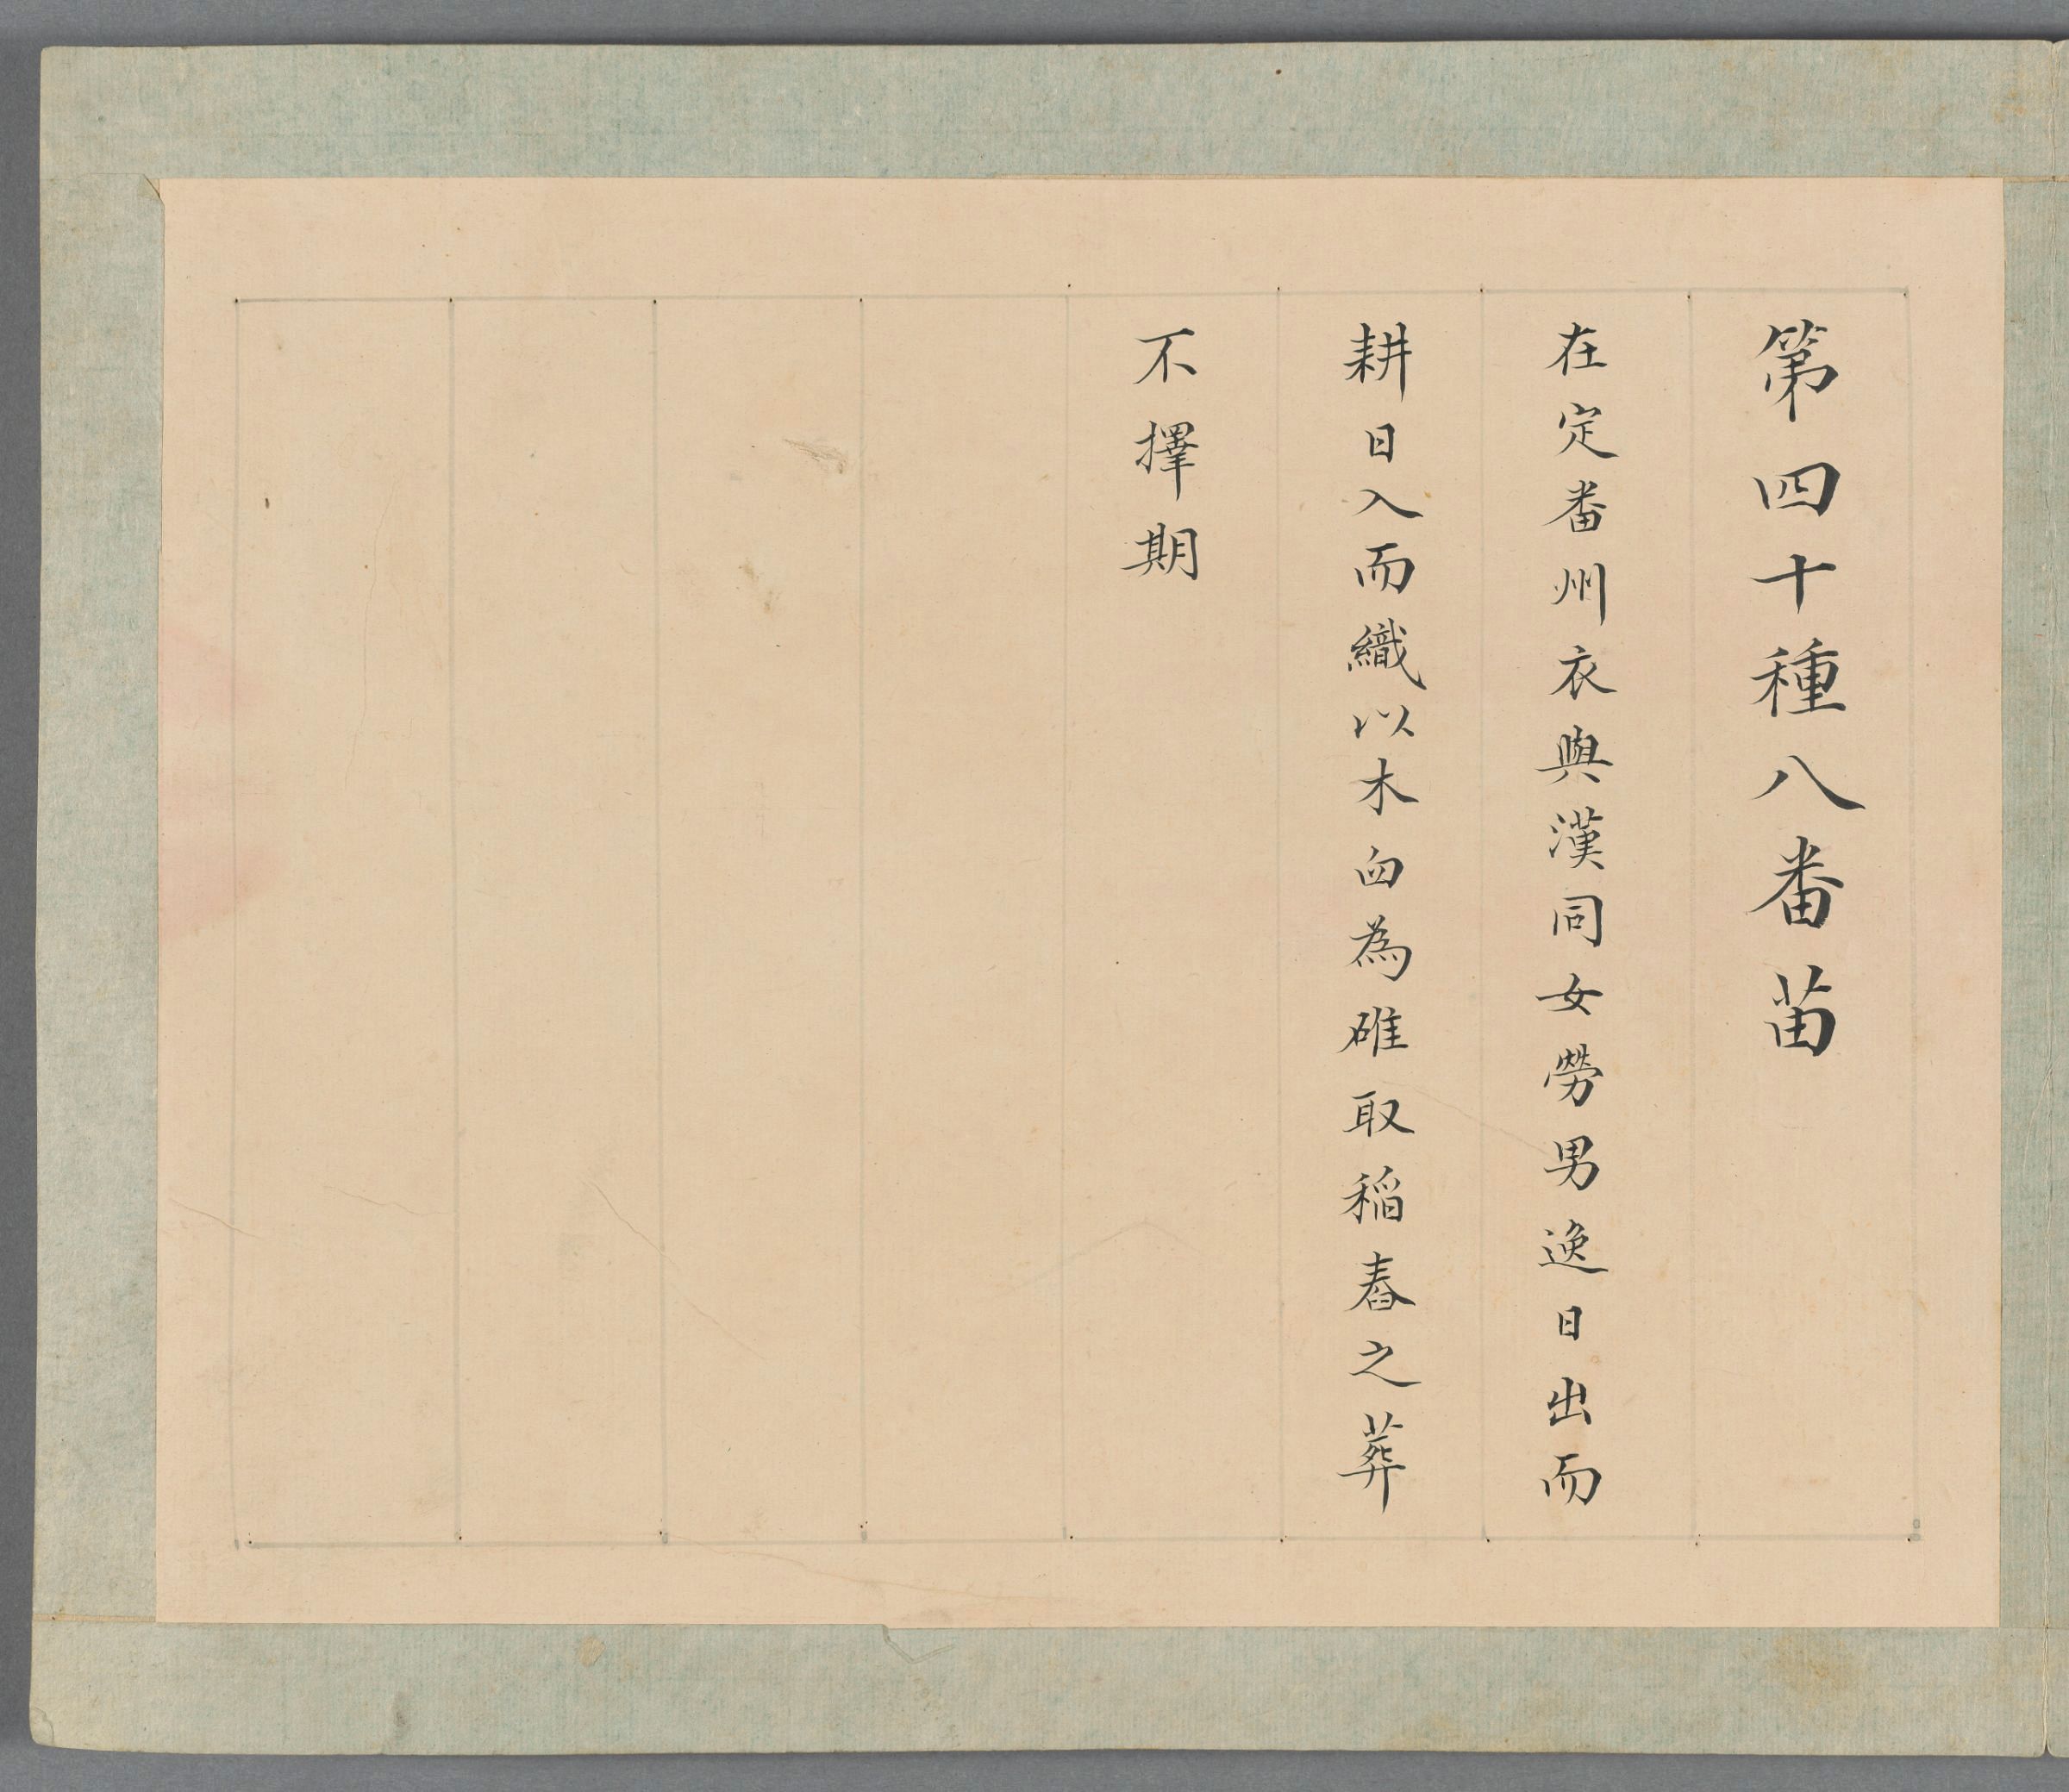 第四十種八番苗
在定番州衣與漢同女勞男逸日出而
耕日入而織以木臼為碓取稲舂之葬
不擇期